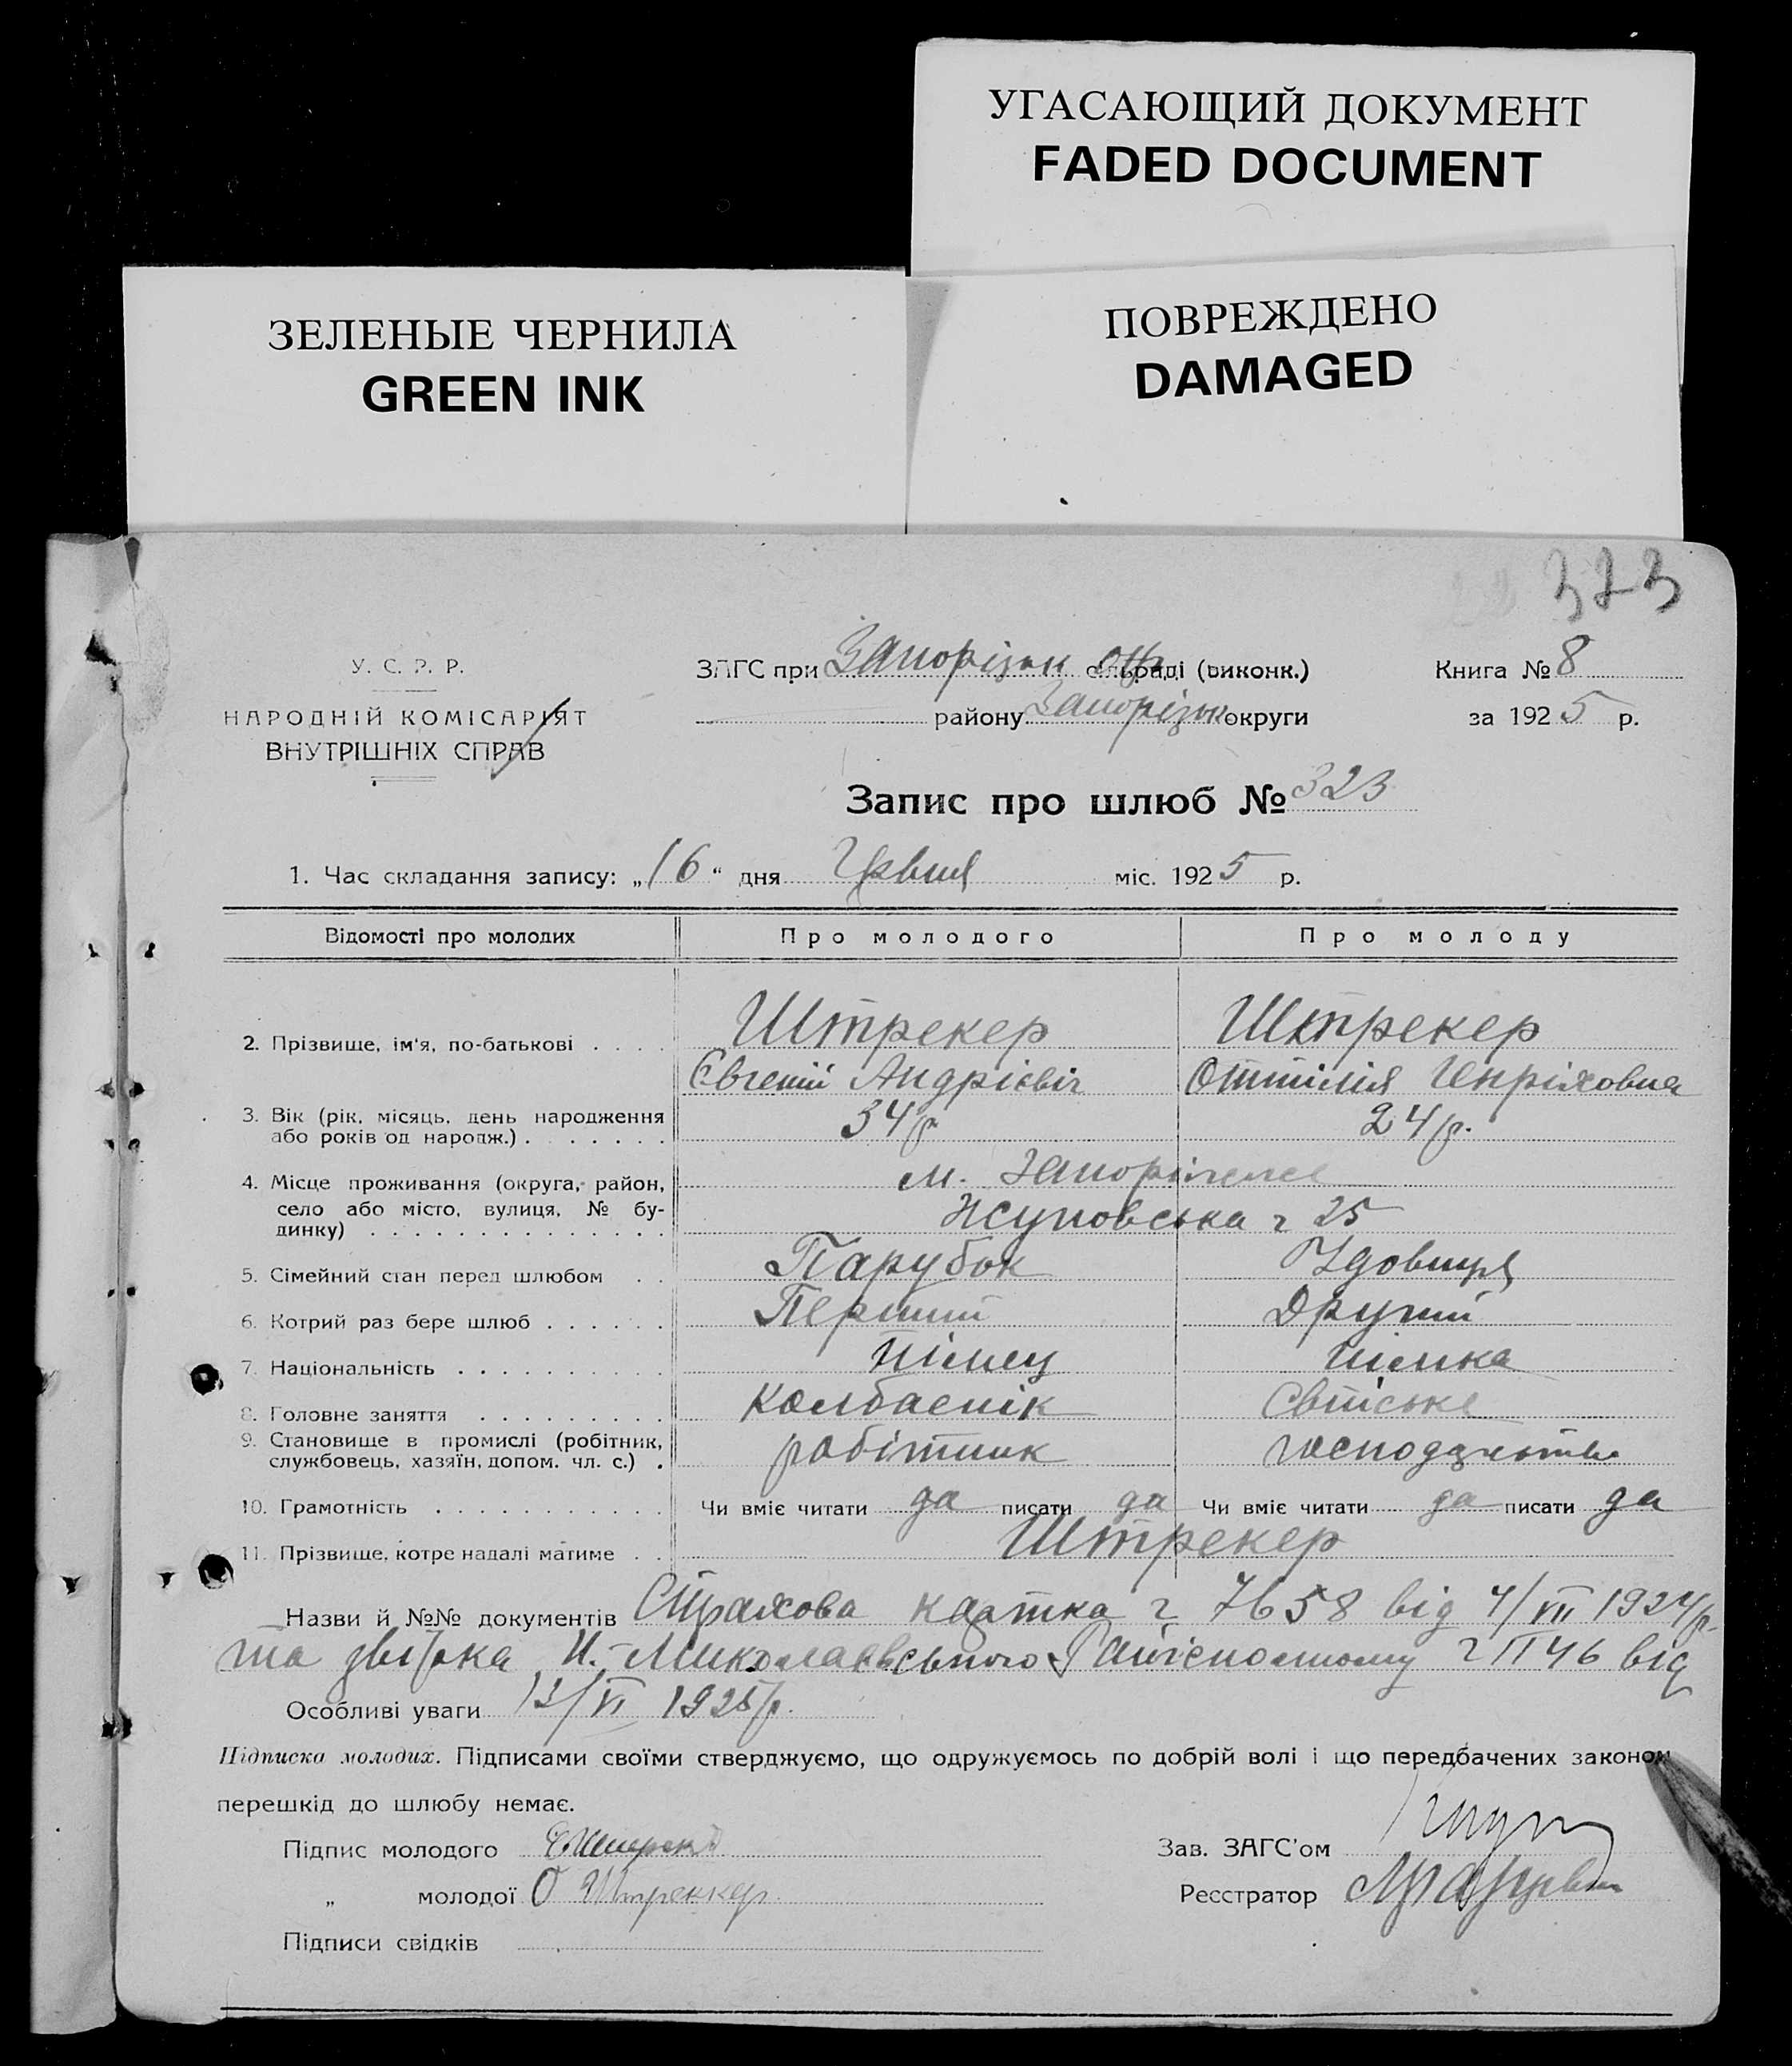 УГАСАЮЩИЙ ДОКУМЕНТ
FADED DOCUMENT
ЗЕЛЕНЫЕ ЧЕРНИЛА
GREEN INK
ПОВРЕЖДЕНО
DAMAGED
323
У. С. Р. Р.
НАРОДНІЙ КОМІСАРІЯТ
ВНУТРІШНІХ СПРАВ
ЗАГС при Запорізьк окр. сільраді (виконк.)
району Запорізьк округи
Книга № 8
за 1925 р.
Запис про шлюб № 323
1. Час складання запису: „16“ дня Червня міс. 1925 р.
Відомості про молодих Про молодого Про молоду
2. Прізвище, ім'я, по-батькові . . . . Штрекер Штрекер
Євгеній Андрієвіч Оттілія Генріховна
3. Вік (рік, місяць, день народження
або років од народж.) . . . . . . . 34 р. 24 р.
4. Місце проживання (округа, район, м. Запоріжже
село або місто, вулиця, № бу-
динку) . . . . . . . . . . . . . . ч 25
5. Сімейний стан перед шлюбом . . Парубок Удовиця
6. Котрий раз бере шлюб . . . . . . Перший Другий
7. Національність . . . . . . . . . . Німец Німка
8. Головне заняття . . . . . . . . . Колбаснік Світське
9. Становище в промислі (робітник,
службовець, хазяїн, допом. чл. с.) . робітник господарство
10. Грамотність . . . . . . . . . . . Чи вміє читати да писати да Чи вміє читати да писати да
11. Прізвище, котре надалі матиме . . Штрекер
Назви й №№ документів Страхова картка ч 7658 від 4/VII 1924 р.
та звірка Н.-Миколаєвського Райісполкому ч 1146 від
Особливі уваги 13/VI 1925 р.
Підписка молодих. Підписами своїми стверджуємо, що одружуємось по добрій волі і що передбачених законом
перешкід до шлюбу немає.
Підпис молодого
Зав. ЗАГС'ом
„ молодої О Штреккер
Реєстратор
Підписи свідків